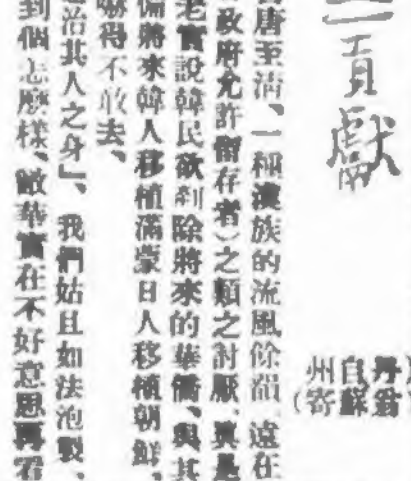 貢獻
丹翁
自蘇
州寄
唐至清、一種漢族的流風餘韻遠在
政府允許留存者)之類之討厭、眞是
老實說韓民欲剷除將來的華僑、與其
備將來韓人移植滿蒙日人移植朝鮮、
嚇得不敢去、
治其人之身』、我們姑且如法泡製、
到個怎麼樣、敝華實在不好意思再看